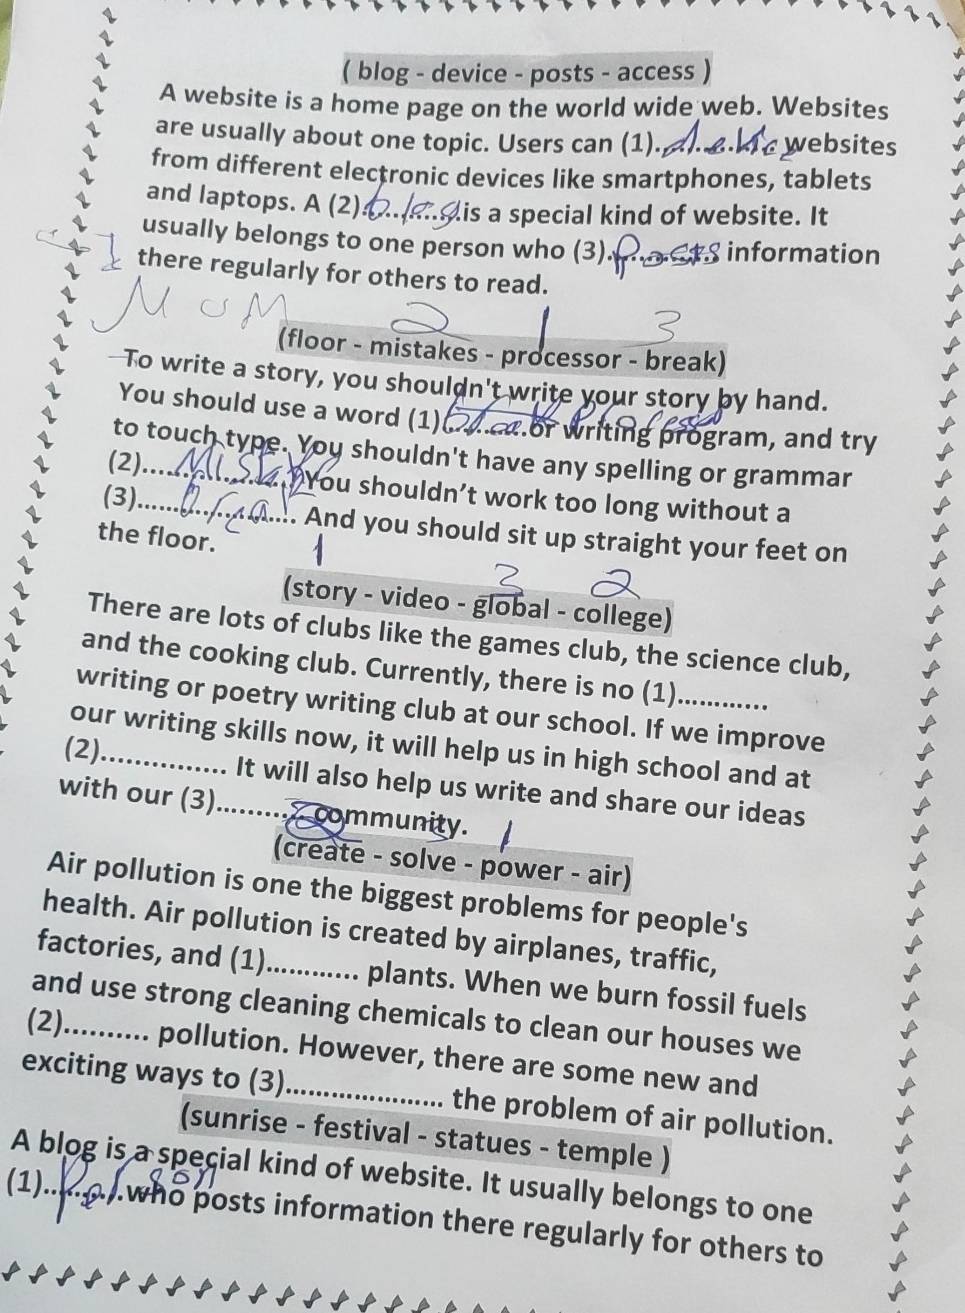 ( blog - device - posts - access )
A website is a home page on the world wide web. Websites
are usually about one topic. Users can (1). websites
from different electronic devices like smartphones, tablets
and laptops. A (2).blog.is a special kind of website. It
usually belongs to one person who (3).posts information
there regularly for others to read.
MUM 2 1 3
(floor - mistakes - processor - break)
To write a story, you shouldn't write your story by hand.
You should use a word (1)...........or writing program, and try
to touch type. You shouldn't have any spelling or grammar
(2)................You shouldn't work too long without a
(3)................ And you should sit up straight your feet on
the floor.
1 3 2
(story - video - global - college)
There are lots of clubs like the games club, the science club,
and the cooking club. Currently, there is no (1).............
writing or poetry writing club at our school. If we improve
our writing skills now, it will help us in high school and at
(2)............... It will also help us write and share our ideas
with our (3)........... community.
2 3 1
(create - solve - power - air)
Air pollution is one the biggest problems for people's
health. Air pollution is created by airplanes, traffic,
factories, and (1)............. plants. When we burn fossil fuels
and use strong cleaning chemicals to clean our houses we
(2).......... pollution. However, there are some new and
exciting ways to (3)...................... the problem of air pollution.
(sunrise - festival - statues - temple )
A blog is a special kind of website. It usually belongs to one
(1)..person.who posts information there regularly for others to